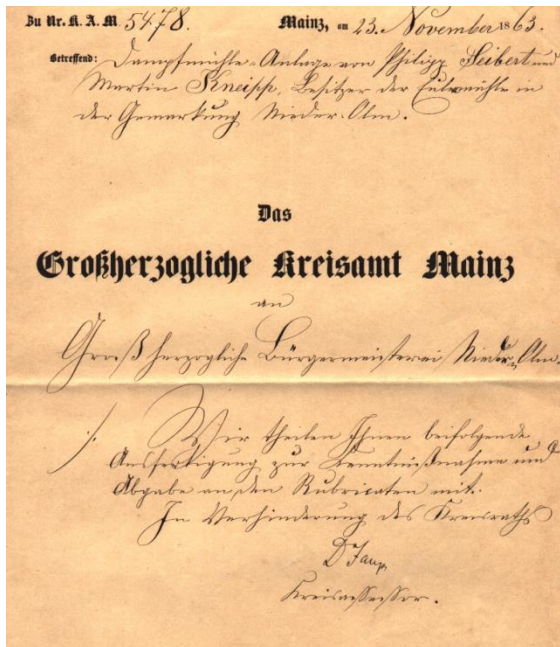 Zu Nr. K. A. M. 5478. Mainz, am 23. November 1863.
Betreffend: Dampfmühle-Anlage von Philipp Seibert und
Martin Kneipp, Besitzer der Eulmühle in
der Gemarkung Nieder-Olm.
Das
Großherzogliche Kreisamt Mainz
an
Großherzogliche Bürgermeisterei Nieder-Olm.
./. Wir theilen Ihnen beifolgende
Ausfertigung zur Kenntnißnahme und
Abgabe an den Rubricaten mit.
In Verhinderung des Kreisraths
Kreisassessor.